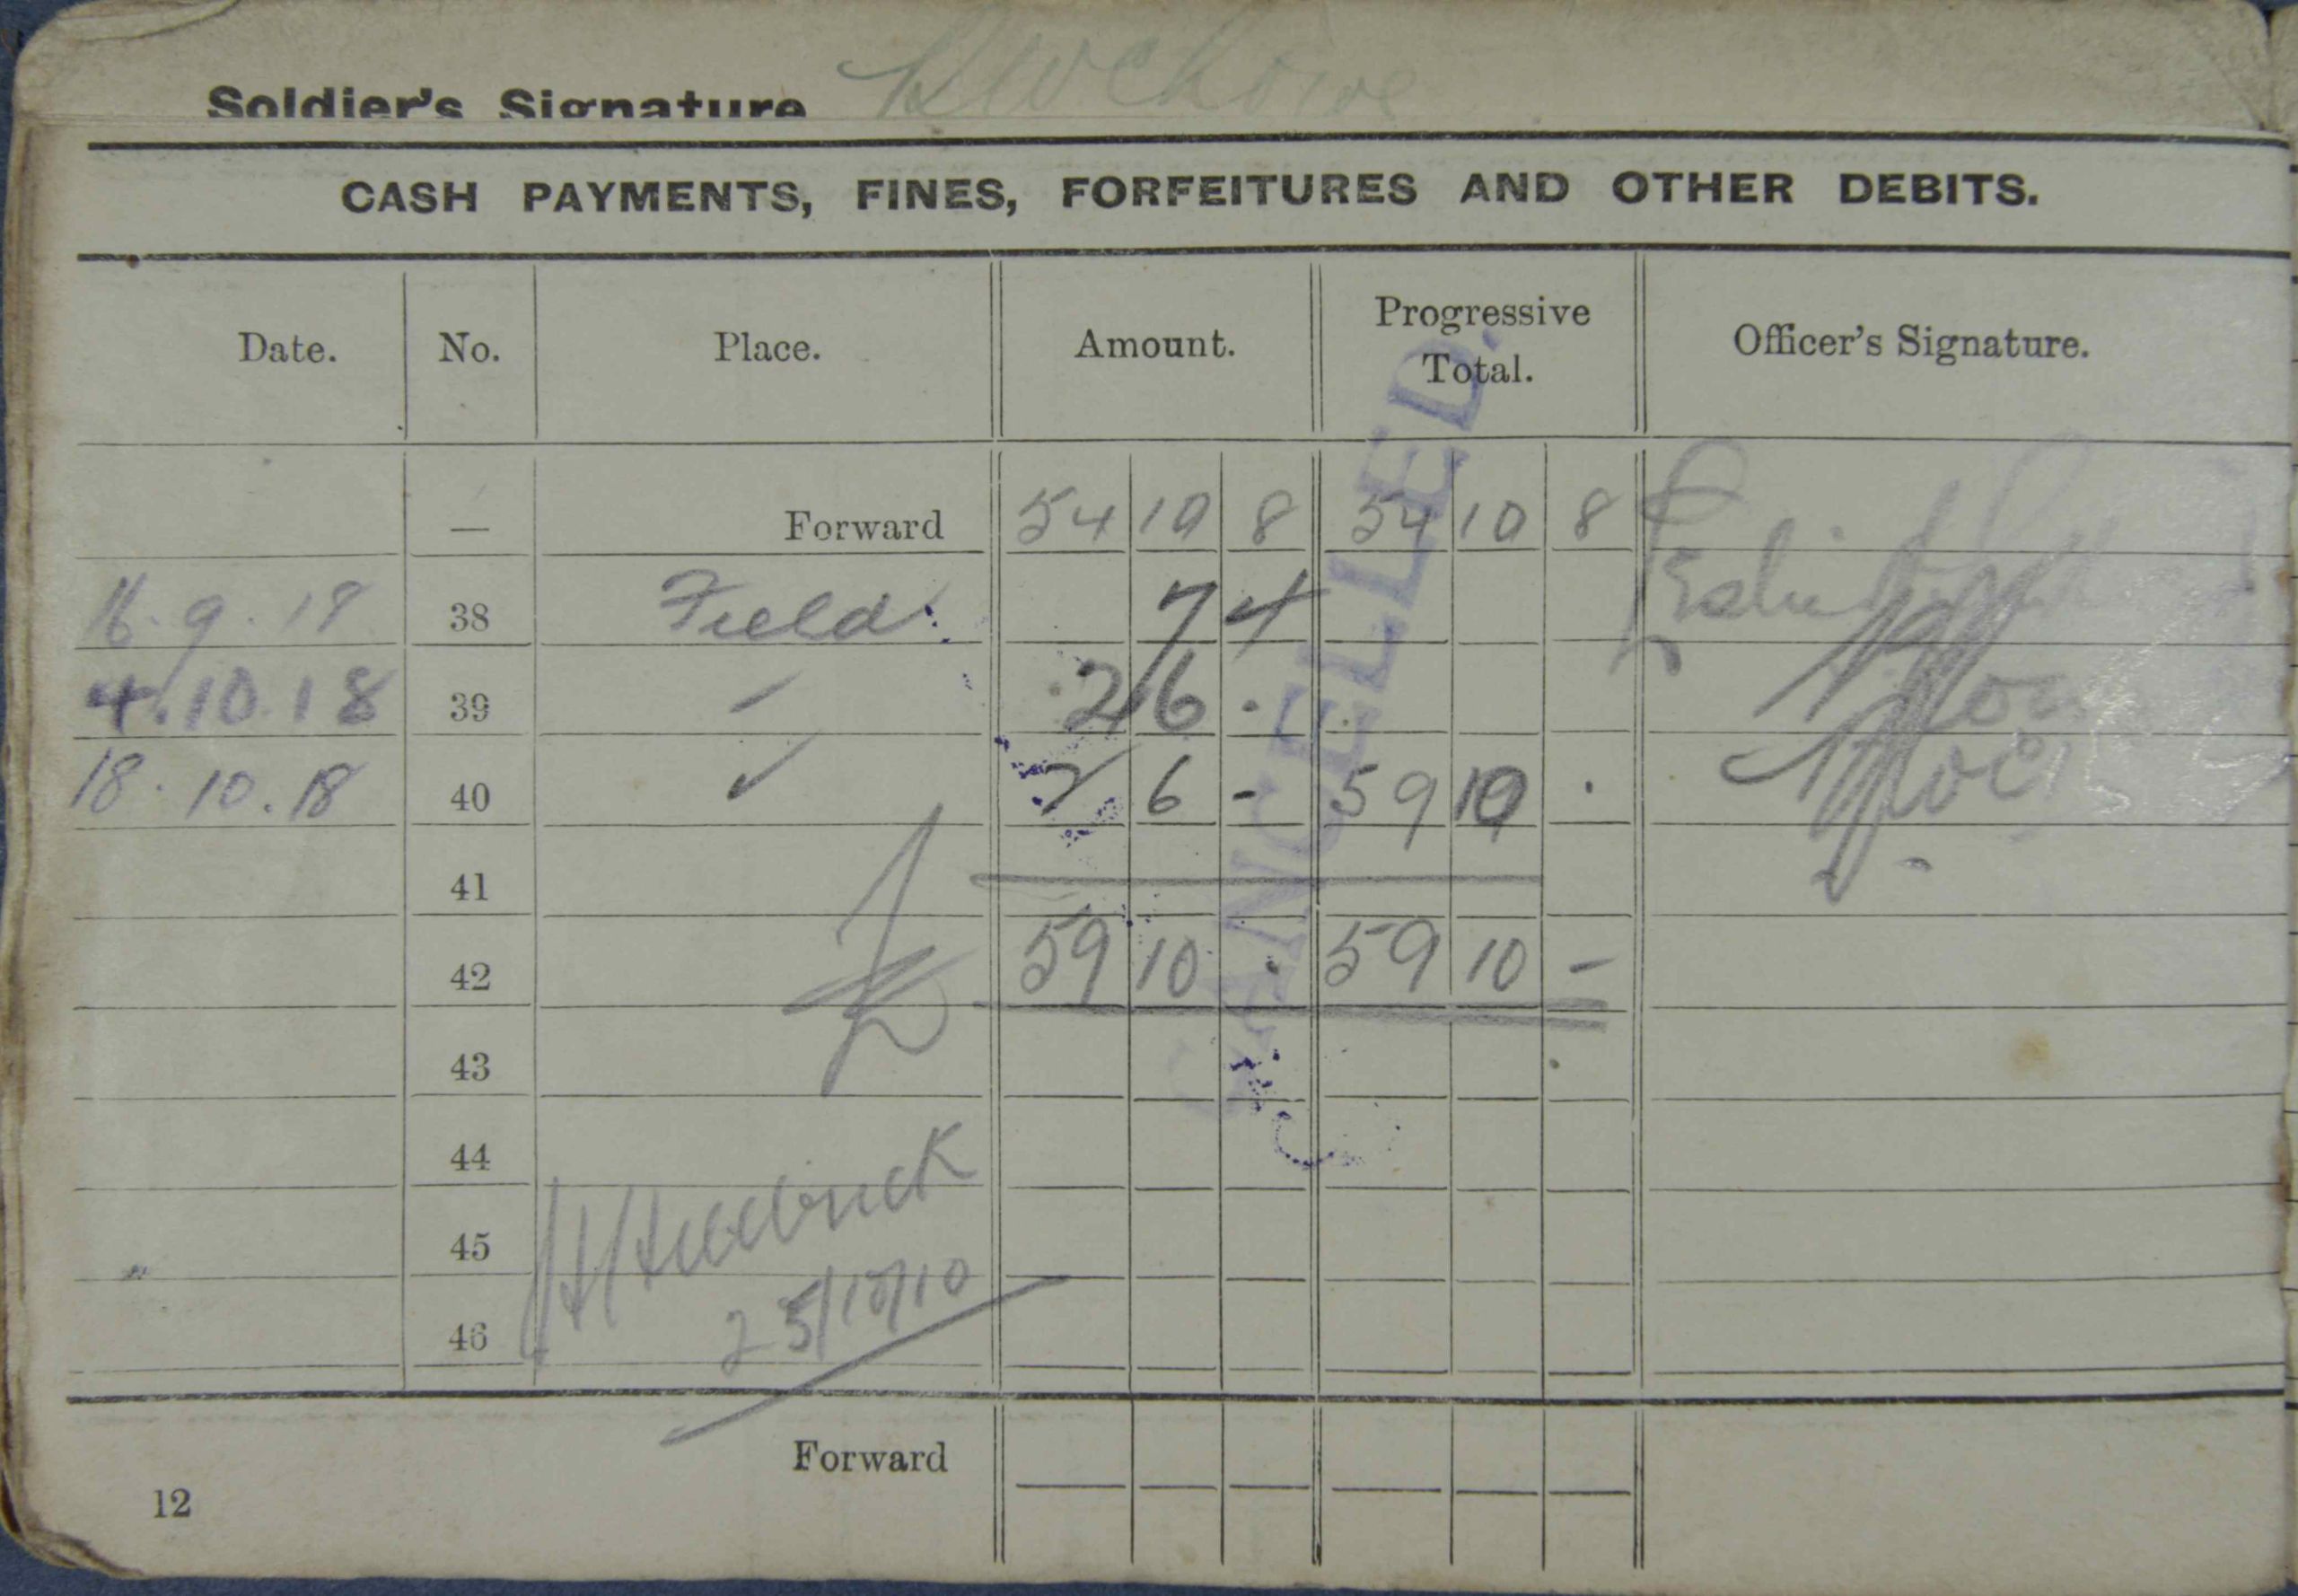 Soldier's Signature
CASH PAYMENTS, FINES, FORFEITURES AND OTHER DEBITS.
Date. No. Place. Amount. Progressive Total. Officer's Signature.
— Forward 54 10 8 54 10 8
16.9.18 38 Field 7 4
4.10.18 39 2 6 .
18.10.18 40 2 6 - 59 10 .
41
42 59 10 . 59 10 -
43
44
45
25/10/10
46
Forward
12
CANCELLED.